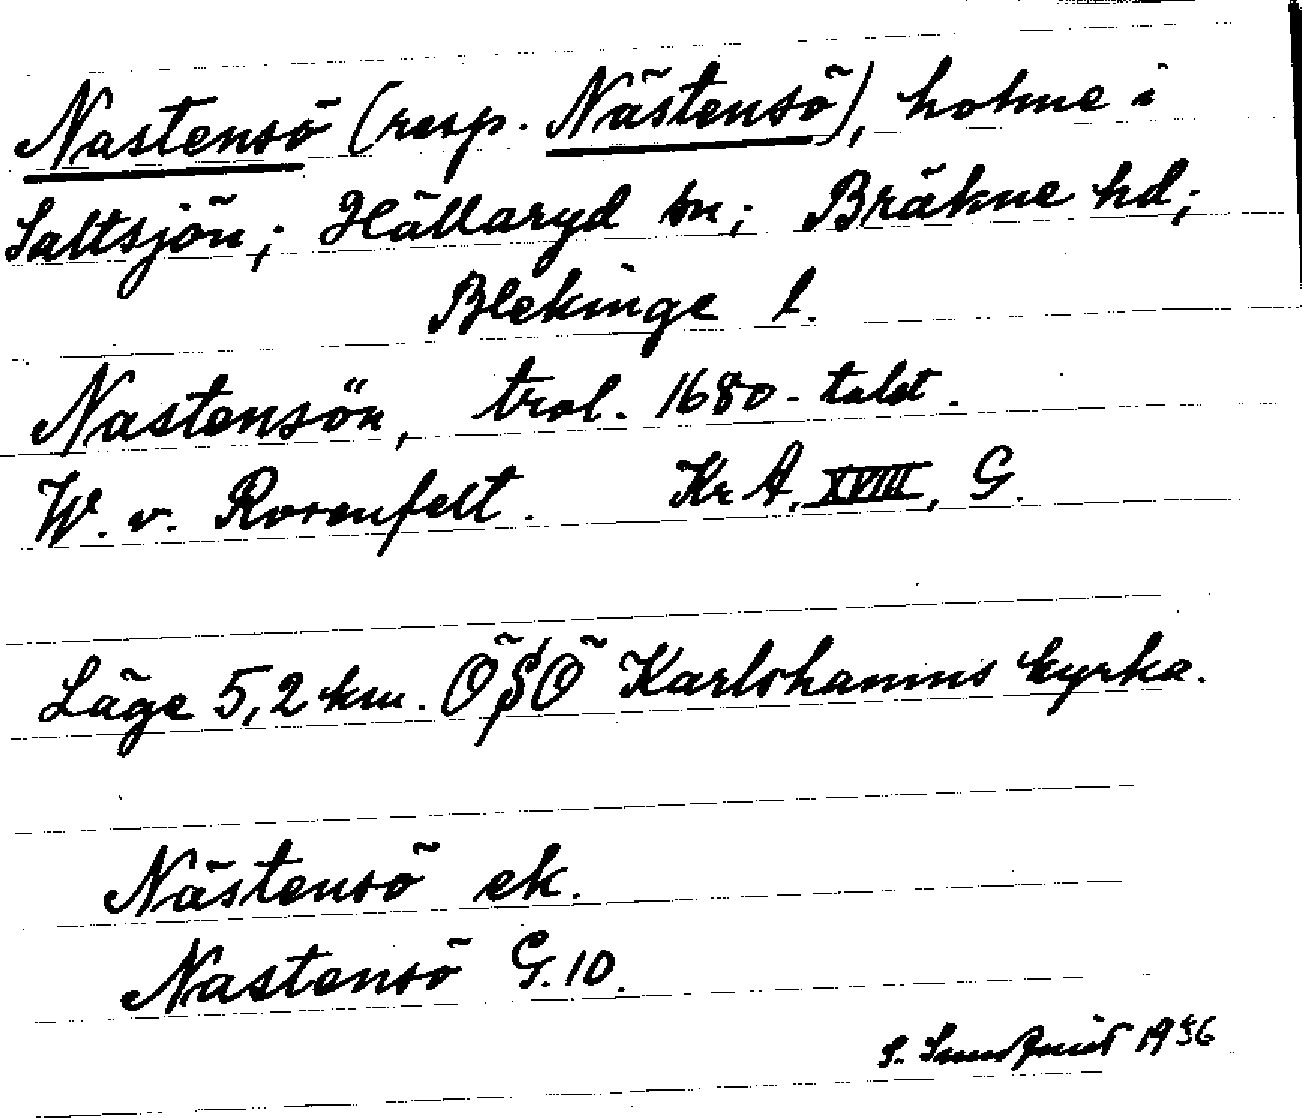 Nastensö (resp. Nästensö), holme i
Saltsjön; Hällaryd sn; Bräkne hd;
Blekinge l.
Nastensön, trol. 1680-talet.
W. v. Rosenfelt. Kr A, XVIII, G.
Läge 5,2 km. ÖSÖ Karlshamns kyrka.
Nästensö ek.
Nastensö G.10.
S. 1936